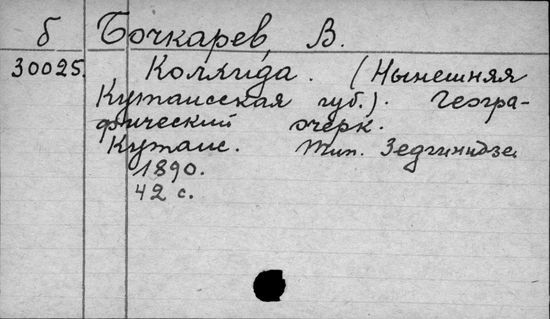 б Бочкарев, В.
30025. Колхида. (Нынешняя
Кутаисская губ.). Геогра-
фический очерк.
Кутаис. Тип. Зедгинидзе
1890.
42 с.